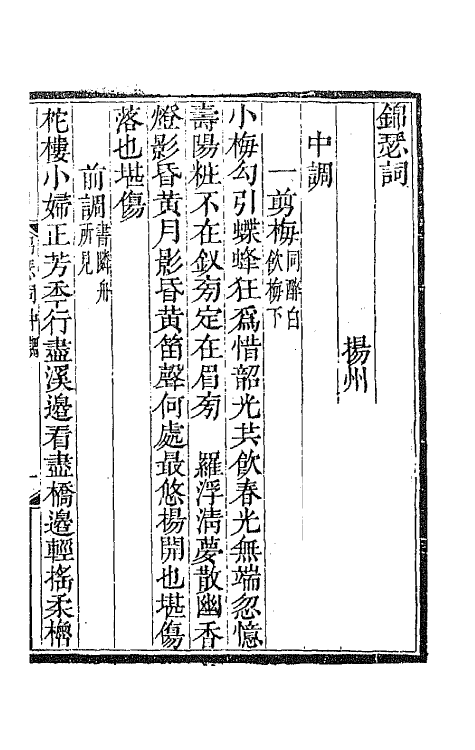 錦瑟詞
揚州
中調
一剪梅同醉白飲梅下
小梅勾引蝶蜂狂爲惜韶光共飲春光無端忽憶
壽陽粧不在釵旁定在眉旁　羅浮清夢散幽香
燈影昏黄月影昏黄笛聲何處最悠揚開也堪傷
落也堪傷
前調書隣舟所見
柁樓小婦正芳年行盡溪邊看盡橋邊輕搖柔櫓